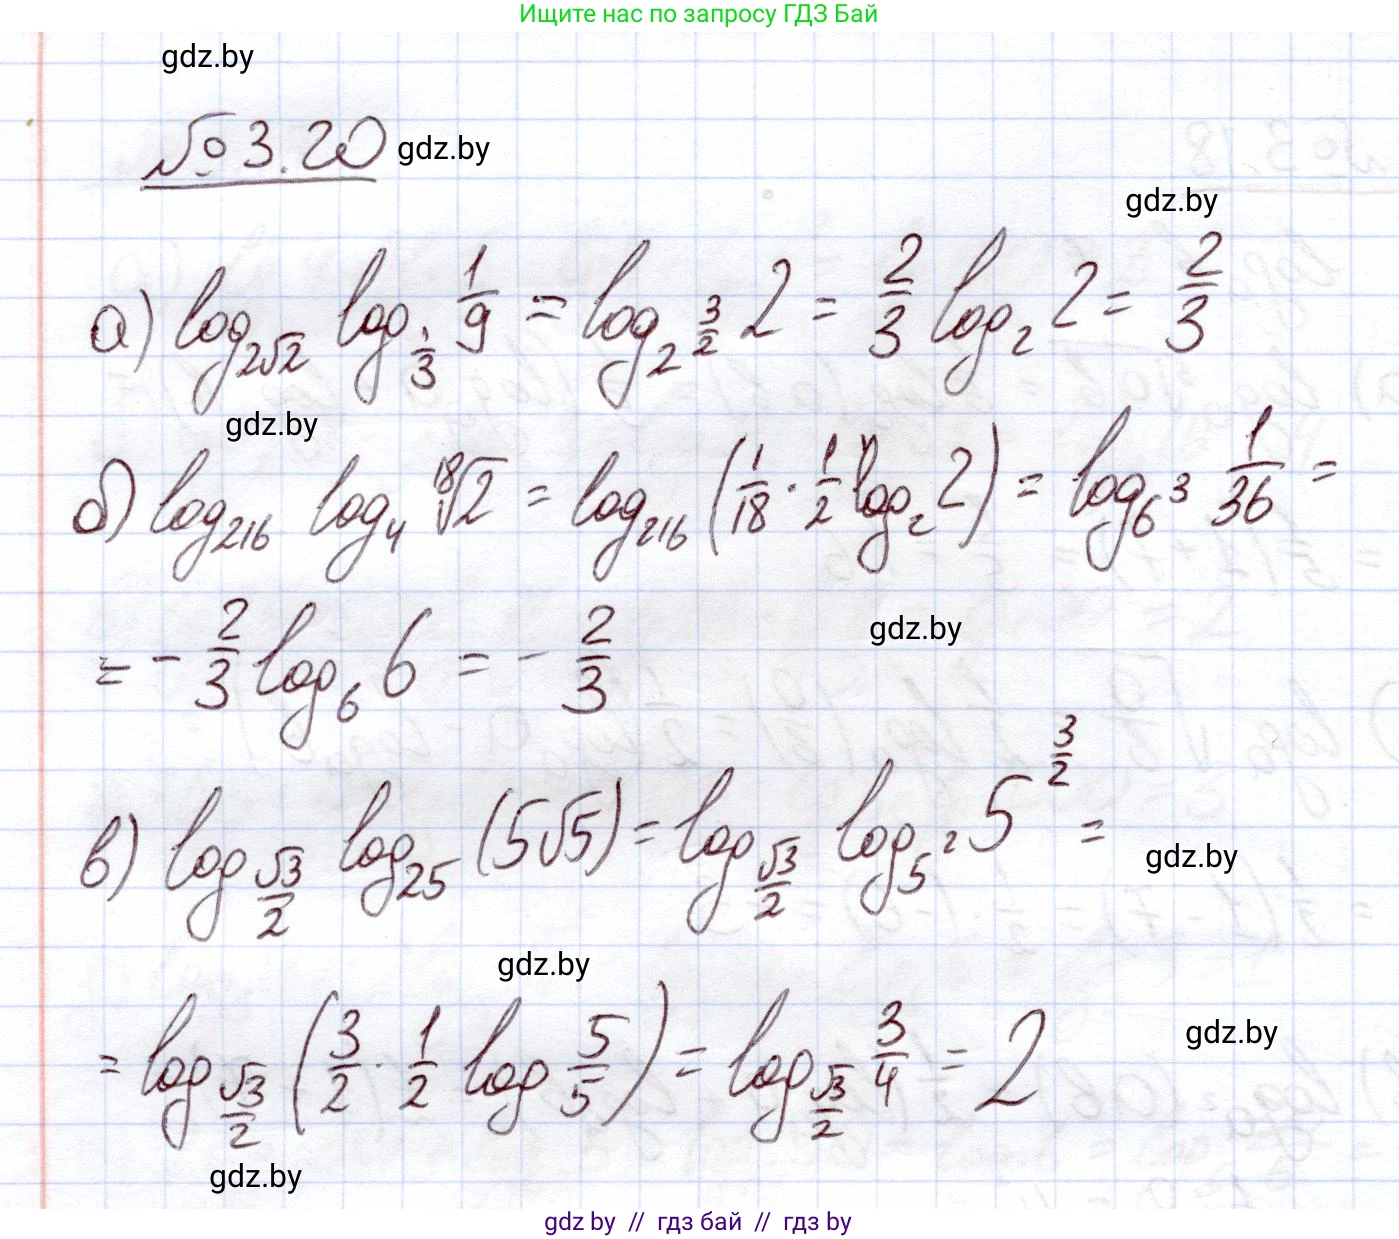 Ищите нас по запросу ГДЗ Бай
gdz.by
№ 3.20 gdz.by
gdz.by
а) log_{2√2} log_{1/3} 1/9 = log_{2^{3/2}} 2 = 2/3 log_2 2 = 2/3
gdz.by
б) log_{216} log_4 ^{18}√2 = log_{216} (1/18 · 1/2 log_2 2) = log_{6^3} 1/36 =
= - 2/3 log_6 6 = - 2/3
gdz.by
в) log_{√3/2} log_{25} (5√5) = log_{√3/2} log_{5^2} 5^{3/2} =
gdz.by
gdz.by
= log_{√3/2} (3/2 · 1/2 log 5/5) = log_{√3/2} 3/4 = 2
gdz.by
gdz.by
gdz by // гдз бай // гдз by